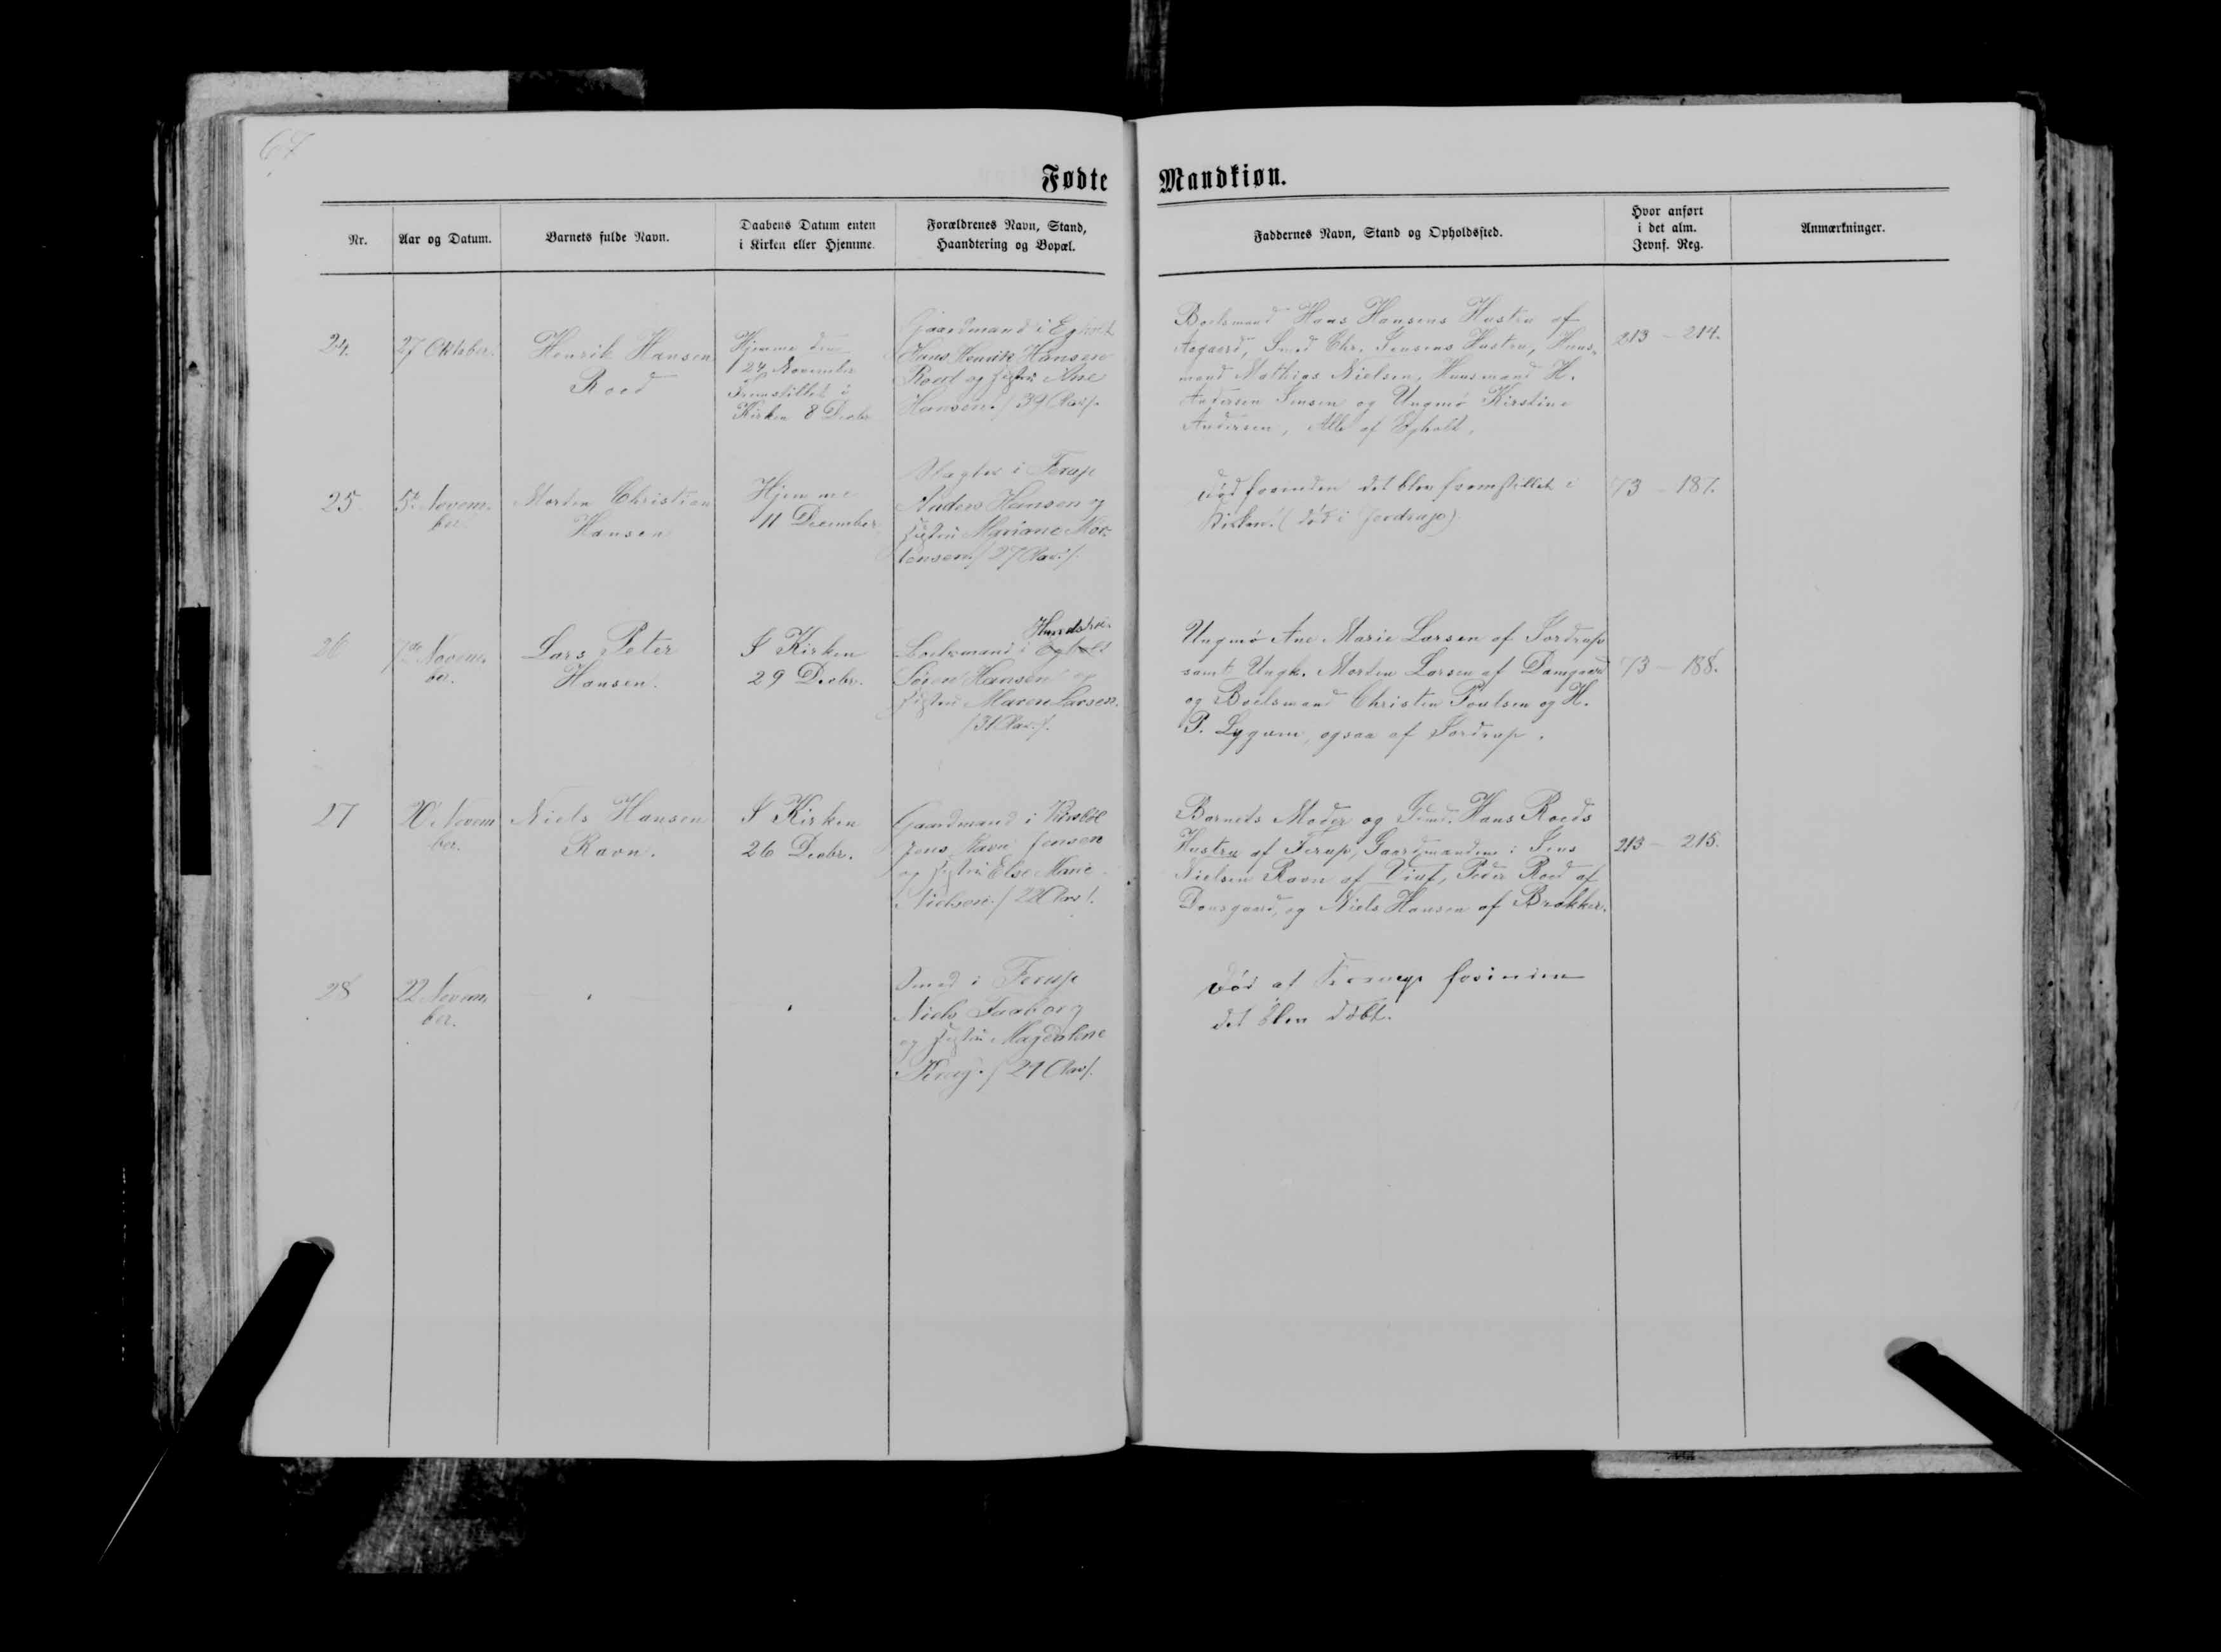 67
Fødte Mandkiøn.
Nr.
Aar og Datum.
Barnets fulde Navn.
Daabens Datum enten
i Kirken eller Hjemme.
Forældrenes Navn, Stand,
Haandtering og Bopæl.
Faddernes Navn, Stand og Opholdssted.
Hvor anført
i det alm.
Jevnf. Reg.
Anmærkninger.
24.
27 Oktober.
Henrik Hansen
Roed
Hjemme den
24 November
Fremstillet i
Kirken 8 Decbr.
Gaardmand i Egholt
Hans Henrik Hansen
Roed og Hustru Ane
Hansen. / 34 Aar /.
Boelsmand Hans Hansens Hustru af
Aagaard, Smed Chr. Jensens Hustru, Huus-
mand Mathias Nielsen, Huusmand H.
Andersen Jensen og Ungmø Kirstine
Andersen, Alle af Egholt.
213 – 214.
25.
5te Novem-
ber.
Morten Christian
Hansen
Hjemme
11 December
i Ferup
Anders Hansen og
Hustru Mariane Mor-
tensen / 27 Aar /.
død forinden det blev fremstillet i
Kirken. (død i Jordrup)
73 – 187.
26
7de Novem-
ber.
Lars Peter
Hansen.
I Kirken
29 Decbr.
Boelsmand i Egholt
Søren Hansen og
Hustru Maren Larsen.
/ 31 Aar /.
Ungmø Ane Marie Larsen af Jordrup
samt Ungk. Morten Larsen af Damgaard
og Boelsmand Christen Poulsen og H.
P. Lygum, ogsaa af Jordrup.
73 – 188.
27
20 Novem
ber.
Niels Hansen
Ravn.
I Kirken
26 Decbr.
Gaardmand i
Jens Ravn Jensen
og Hustru Else Marie
Nielsen. / 22 Aar /.
Barnets Moder og Gdmd. Hans Roeds
Hustru af Ferup, Gaardmændene: Jens
Nielsen Ravn af Viuf, Peder Roed af
Donsgaard, og Niels Hansen af Brakker.
213 – 215.
28
22 Novem-
ber.
Smed i Ferup
Niels Faaborg
og Hustru Magdalene
/ 29 Aar /.
Død at forinden
det blev døbt.